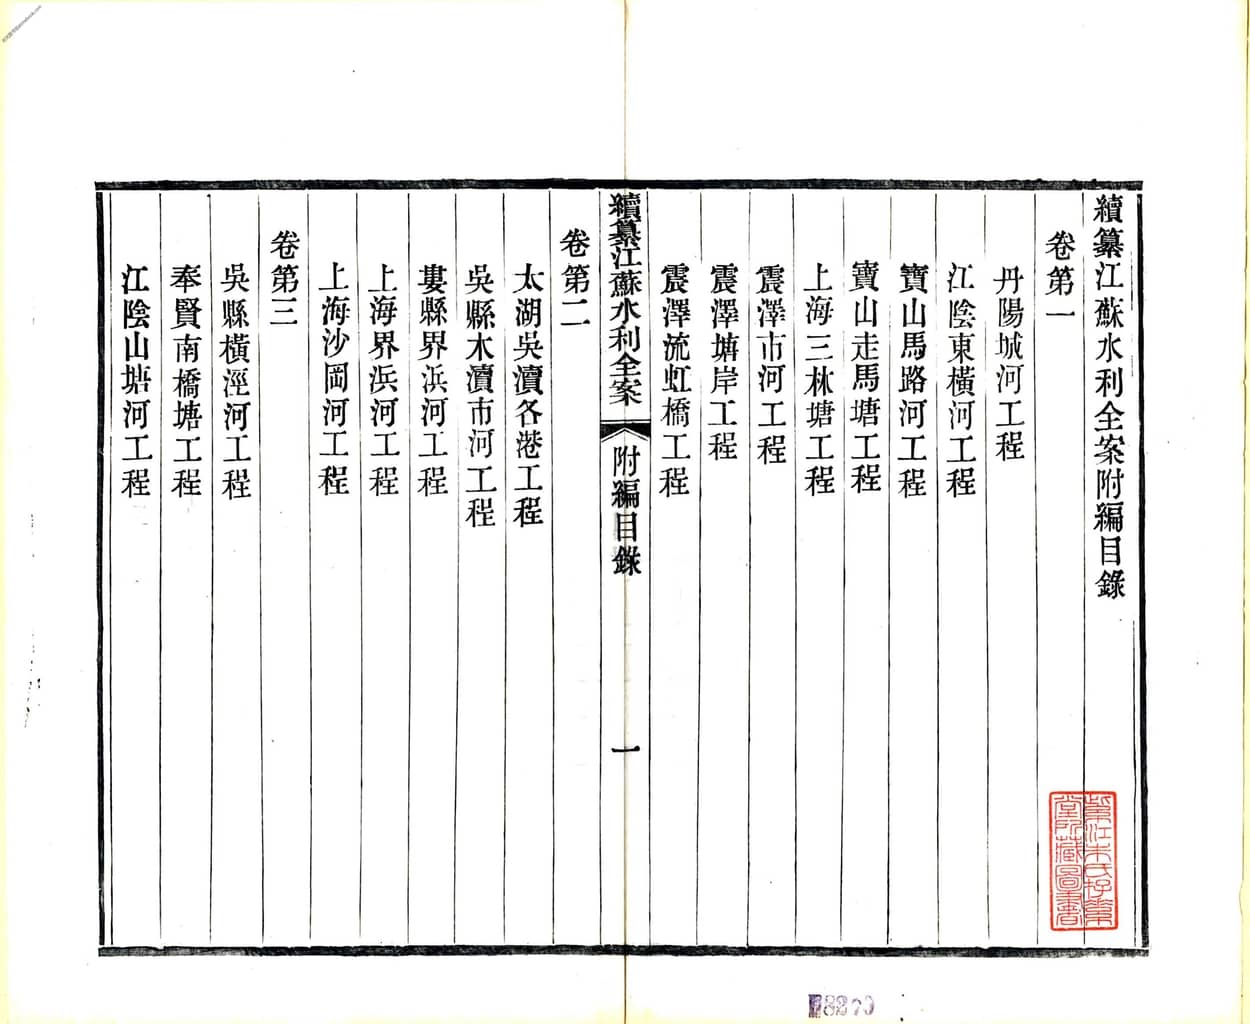 續纂江蘇水利全案附編目錄
卷第一
丹陽城河工程
江陰東橫河工程
寶山馬路河工程
寶山走馬塘工程
上海三林塘工程
震澤市河工程
震澤塘岸工程
震澤流虹橋工程
續纂江蘇水利全案
附編目錄
一
卷第二
太湖吳瀆各港工程
吳縣木瀆市河工程
婁縣界浜河工程
上海界浜河工程
上海沙岡河工程
卷第三
吳縣橫涇河工程
奉賢南橋塘工程
江陰山塘河工程